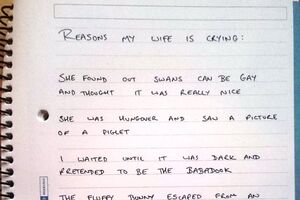 REASONS MY WIFE IS CRYING:
SHE FOUND OUT SWANS CAN BE GAY
AND THOUGHT IT WAS REALLY NICE
SHE WAS HUNGOVER AND SAW A PICTURE
OF A PIGLET
I WAITED UNTIL IT WAS DARK AND
PRETENDED TO BE THE BABADOOK
THE FLUFFY BUNNY ESCAPED FROM AN